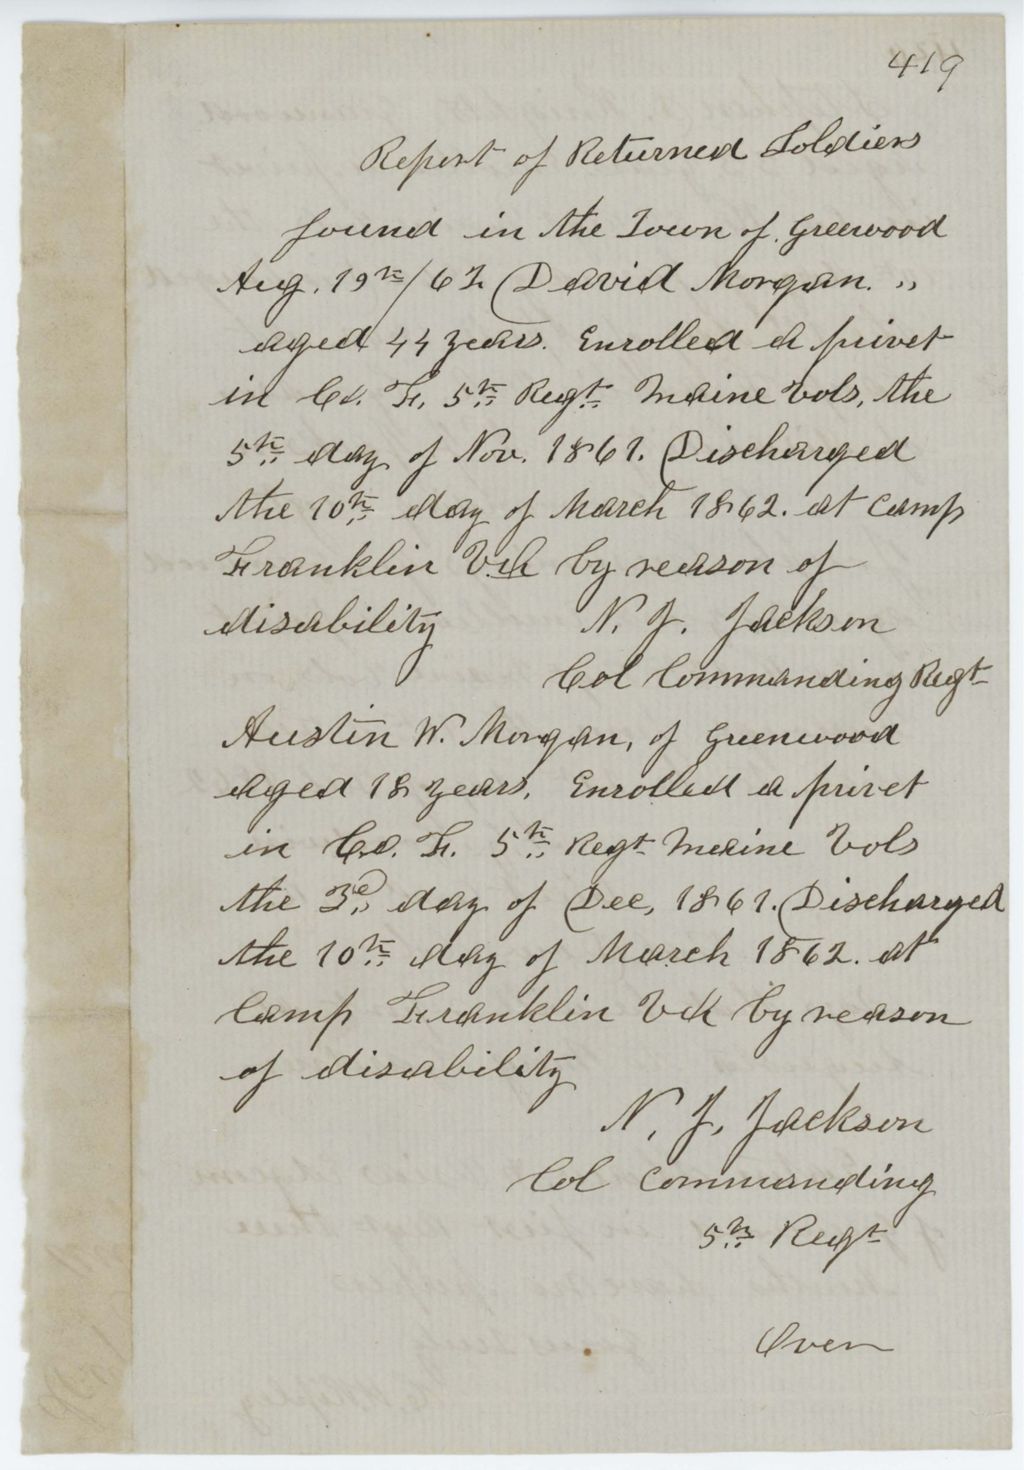 419
Report of Returned Soldiers
found in the Town of Greewood
Aug. 19th/62 David Morgan. "
aged 44 years. Enrolled a privet
in Co. F. 5th Regt Maine Vols, the
5th day of Nov. 1861. Discharged
the 10th day of March 1862. at Camp
Franklin Va by reason of
disability N. J. Jackson
Col Commanding Regt
Austin W. Morgan, of Greenwood
aged 18 years, Enrolled a privet
in Co. F. 5th Regt Maine Vols
the 3d day of Dec, 1861. Discharged
the 10th day of March 1862. at
Camp Franklin Va by reason
of disability
N. J. Jackson
Col Commanding
5th Regt
Over